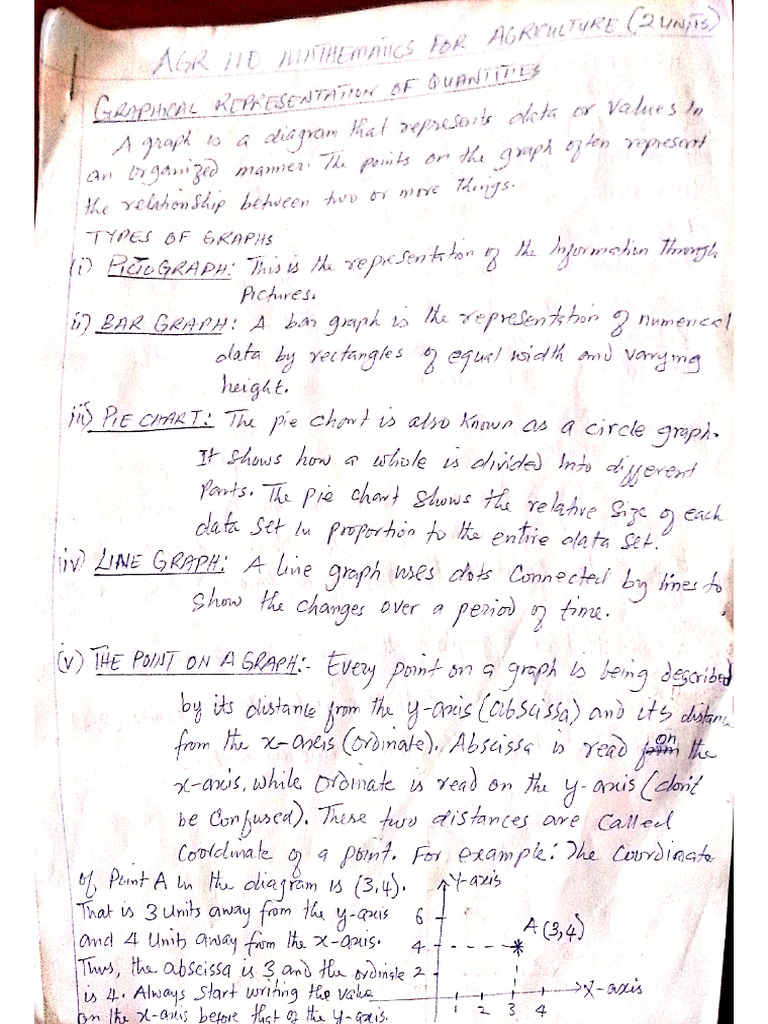 AGR 110 MATHEMATICS FOR AGRICULTURE (2 UNITS)
GRAPHICAL REPRESENTATION OF QUANTITIES
A graph is a diagram that represents data or values in
an organized manner. The points on the graph often represent
the relationship between two or more things.
TYPES OF GRAPHS
(i) PICTOGRAPH: This is the representation of the Information Through
Pictures.
ii) BAR GRAPH: A bar graph is the representation of numerical
data by rectangles of equal width and varying
height.
iii) PIE CHART: The pie chart is also known as a circle graph.
It shows how a whole is divided into different
Parts. The pie chart shows the relative size of each
data set in proportion to the entire data set.
iv) LINE GRAPH: A line graph uses dots connected by lines to
show the changes over a period of time.
(v) THE POINT ON A GRAPH:- Every point on a graph is being described
by its distance from the y-axis (abscissa) and its distanc
from the x-axis (ordinate). Abscissa is read on the
x-axis, while Ordinate is read on the y-axis (don't
be confused). These two distances are called
Coordinate of a point. For example: The Coordinate
of Point A in the diagram is (3,4).
That is 3 units away from the y-axis
and 4 units away from the x-axis.
Thus, the abscissa is 3 and the ordinate
is 4. Always start writing the value
on the x-axis before that of the y-axis.
Y-axis
6
A (3,4)
4
2
X-axis
1 2 3 4